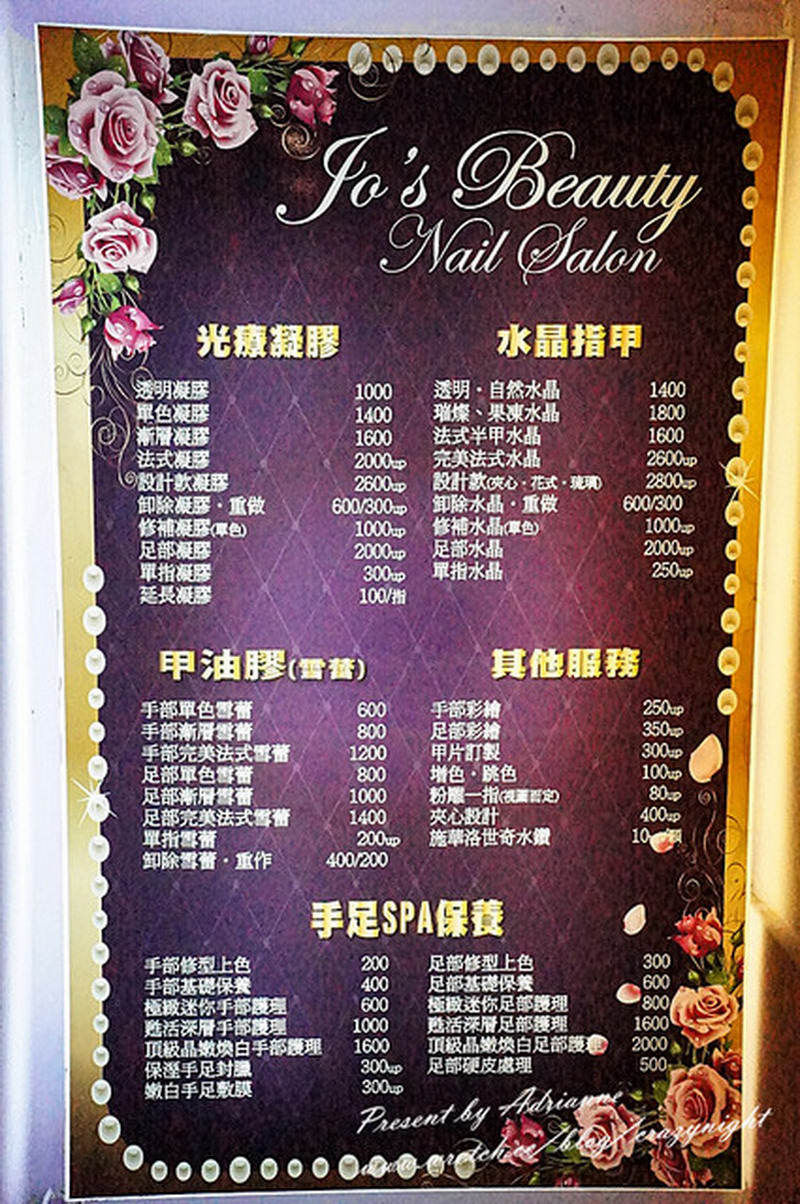 Jo's Beauty
Nail Salon
光療凝膠
透明凝膠 1000
單色凝膠 1400
漸層凝膠 1600
法式凝膠 2000up
設計款凝膠 2600up
卸除凝膠·重做 600/300up
修補凝膠(單色) 1000up
足部凝膠 2000up
單指凝膠 300up
延長凝膠 100/指
水晶指甲
透明·自然水晶 1400
璀燦、果凍水晶 1800
法式半甲水晶 1600
完美法式水晶 2600up
設計款(夾心·花式·琉璃) 2800up
卸除水晶·重做 600/300
修補水晶(單色) 1000up
足部水晶 2000up
單指水晶 250up
甲油膠(雪蕾)
手部單色雪蕾 600
手部漸層雪蕾 800
手部完美法式雪蕾 1200
足部單色雪蕾 800
足部漸層雪蕾 1000
足部完美法式雪蕾 1400
單指雪蕾 200up
卸除雪蕾·重作 400/200
其他服務
手部彩繪 250up
足部彩繪 350up
甲片訂製 300up
增色·跳色 100up
粉雕一指(視圖而定) 80up
夾心設計 400up
施華洛世奇水鑽
手足SPA保養
手部修型上色 200
手部基礎保養 400
極緻迷你手部護理 600
甦活深層手部護理 1000
頂級晶嫩煥白手部護理 1600
保溼手足封臘 300up
嫩白手足敷膜 300up
足部修型上色 300
足部基礎保養 600
極緻迷你足部護理 800
甦活深層足部護理 1600
頂級晶嫩煥白足部護理 2000
足部硬皮處理 500
Present by Adrianne
www.wretch.cc/blog/crazynight